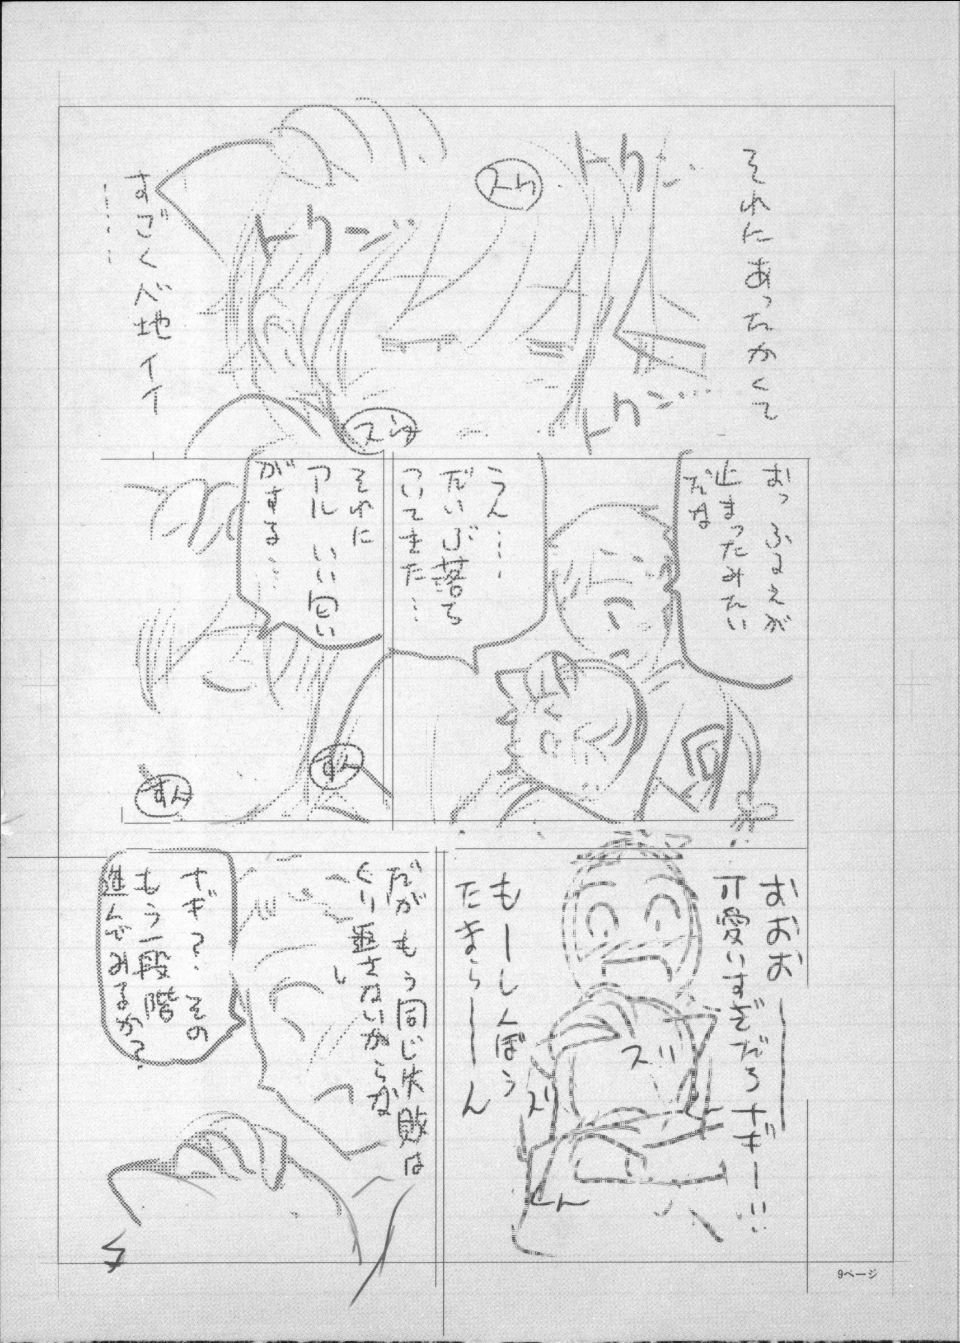 それにあったかくて
トクン…
スウ
トクン…
トクン…
スウ
すごく心地イイ
……
おっ ふるえが
止まったみたい
だな
うん…
だいぶ落ち
ついてきた…
それに
アル いい匂い
がする…
すん
すん
おおお
可愛いすぎだろナギー!!
もーしんぼう
たまらーん
スリ
スリ
だが もう同じ失敗は
くり返さないからな
ナギ?その
もう一段階
進んでみるか?
9ページ